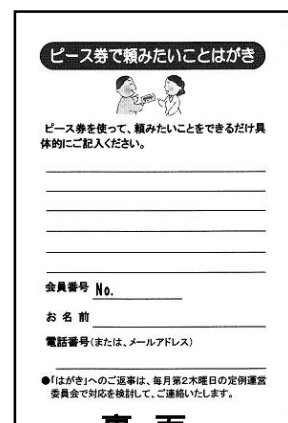 ピース券で頼みたいことはがき
ピース券を使って、頼みたいことをできるだけ具
体的にご記入ください。
会員番号 No.
お名前
電話番号(または、メールアドレス)
●「はがき」へのご返事は、毎月第2木曜日の定例運営
委員会で対応を検討して、ご連絡いたします。
裏面